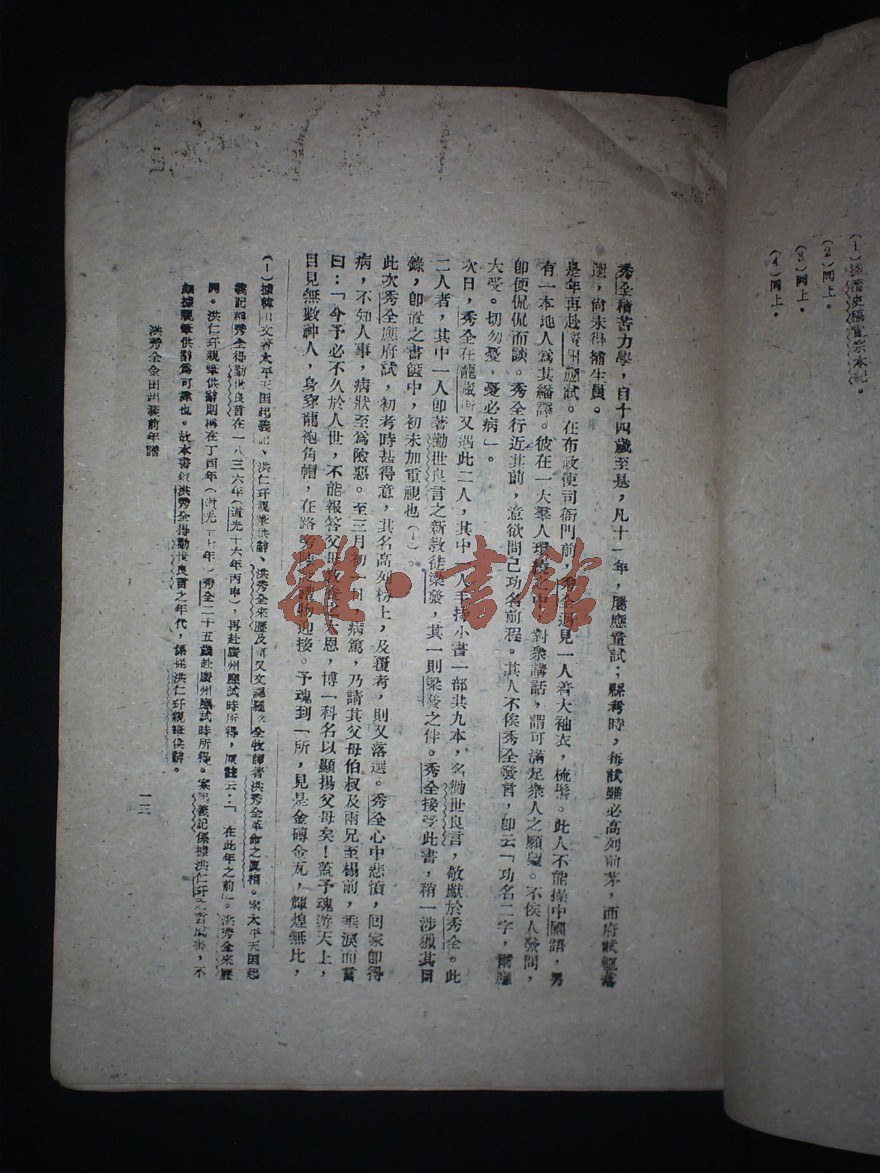 (1)據清史稿宣宗本紀。
(2)同上。
(3)同上。
(4)同上。
秀全稽苦力學，自十四歲至是，凡十一年，屢應童試；縣考時，每試雖必高列前茅，而府試輒落
選，尚未得補生員。
是年再赴廣州應試。在布政使司衙門前，秀全遇見一人着大袖衣，梳髻。此人不能操中國語，另
有一本地人爲其繙譯。彼在一大羣人環繞之中，對衆講話，謂可滿足衆人之願望。不俟人發問，
即便侃侃而談。秀全行近其前，意欲問己功名前程。其人不俟秀全發言，即云「功名二字，爾應
大受。切勿憂，憂必病」。
次日，秀全在龍藏街又遇此二人，其中一人手持小書一部共九本，名勸世良言，敬獻於秀全。此
二人者，其中一人即著勸世良言之新敎徒梁發，其一則梁發之伴。秀全接受此書，稍一涉獵其目
錄，即置之書篋中，初未加重視也(1)。
此次秀全應府試，初考時甚得意，其名高列榜上，及覆考，則又落選。秀全心中悲憤，回家即得
病，不知人事，病狀至爲險惡。至三月初 日病篤，乃請其父母伯叔及兩兄至榻前，垂淚而言
曰：「今予必不久於人世，不能報答父母 之大恩，博一科名以顯揚父母矣！蓋予魂遊天上，
目見無數神人，身穿龍袍角帽，在路旁 禮物迎接。予魂到一所，見是金磚金瓦，輝煌無比，
(1)據韓山文著太平天國起義記、洪仁玕親筆供辭、洪秀全來歷及 又文 全牧師著洪秀全革命之眞相。案太平天國起
義記謂秀全得勸世良言在一八三六年(道光十六年丙申)，再赴廣州應試時所得，原註云：「 在此年之前」。洪秀全來歷
同。洪仁玕親筆供辭則稱在丁酉年(道光十七年)秀全二十五歲赴廣州應試時所得。案起義記係據洪仁玕之言成書，不
如據親筆供辭爲可據也。故本書敍洪秀全得勸世良言之年代，係從洪仁玕親筆供辭。
洪秀全金田起義前年譜
一三
雜·書館